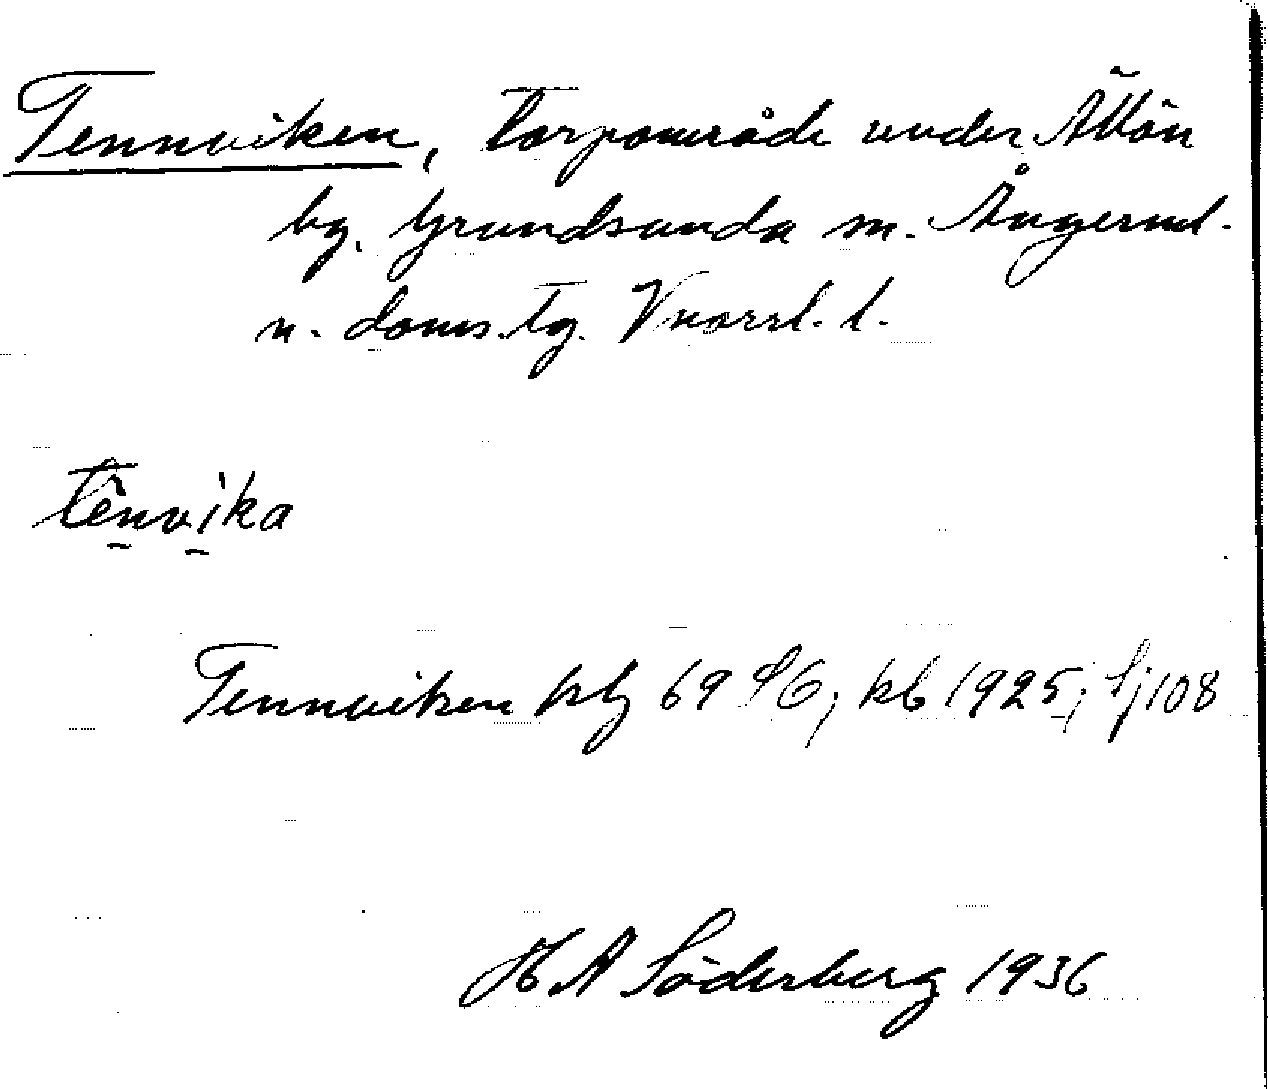 Tennviken, Torpområde under Ällön
by. Grundsunda sn. Ångerml.
n. doms. tg. Vnorrl. l.
tênvika
Tennviken ktg 69 S6; kb 1925; Sj 108
H A Söderberg 1936